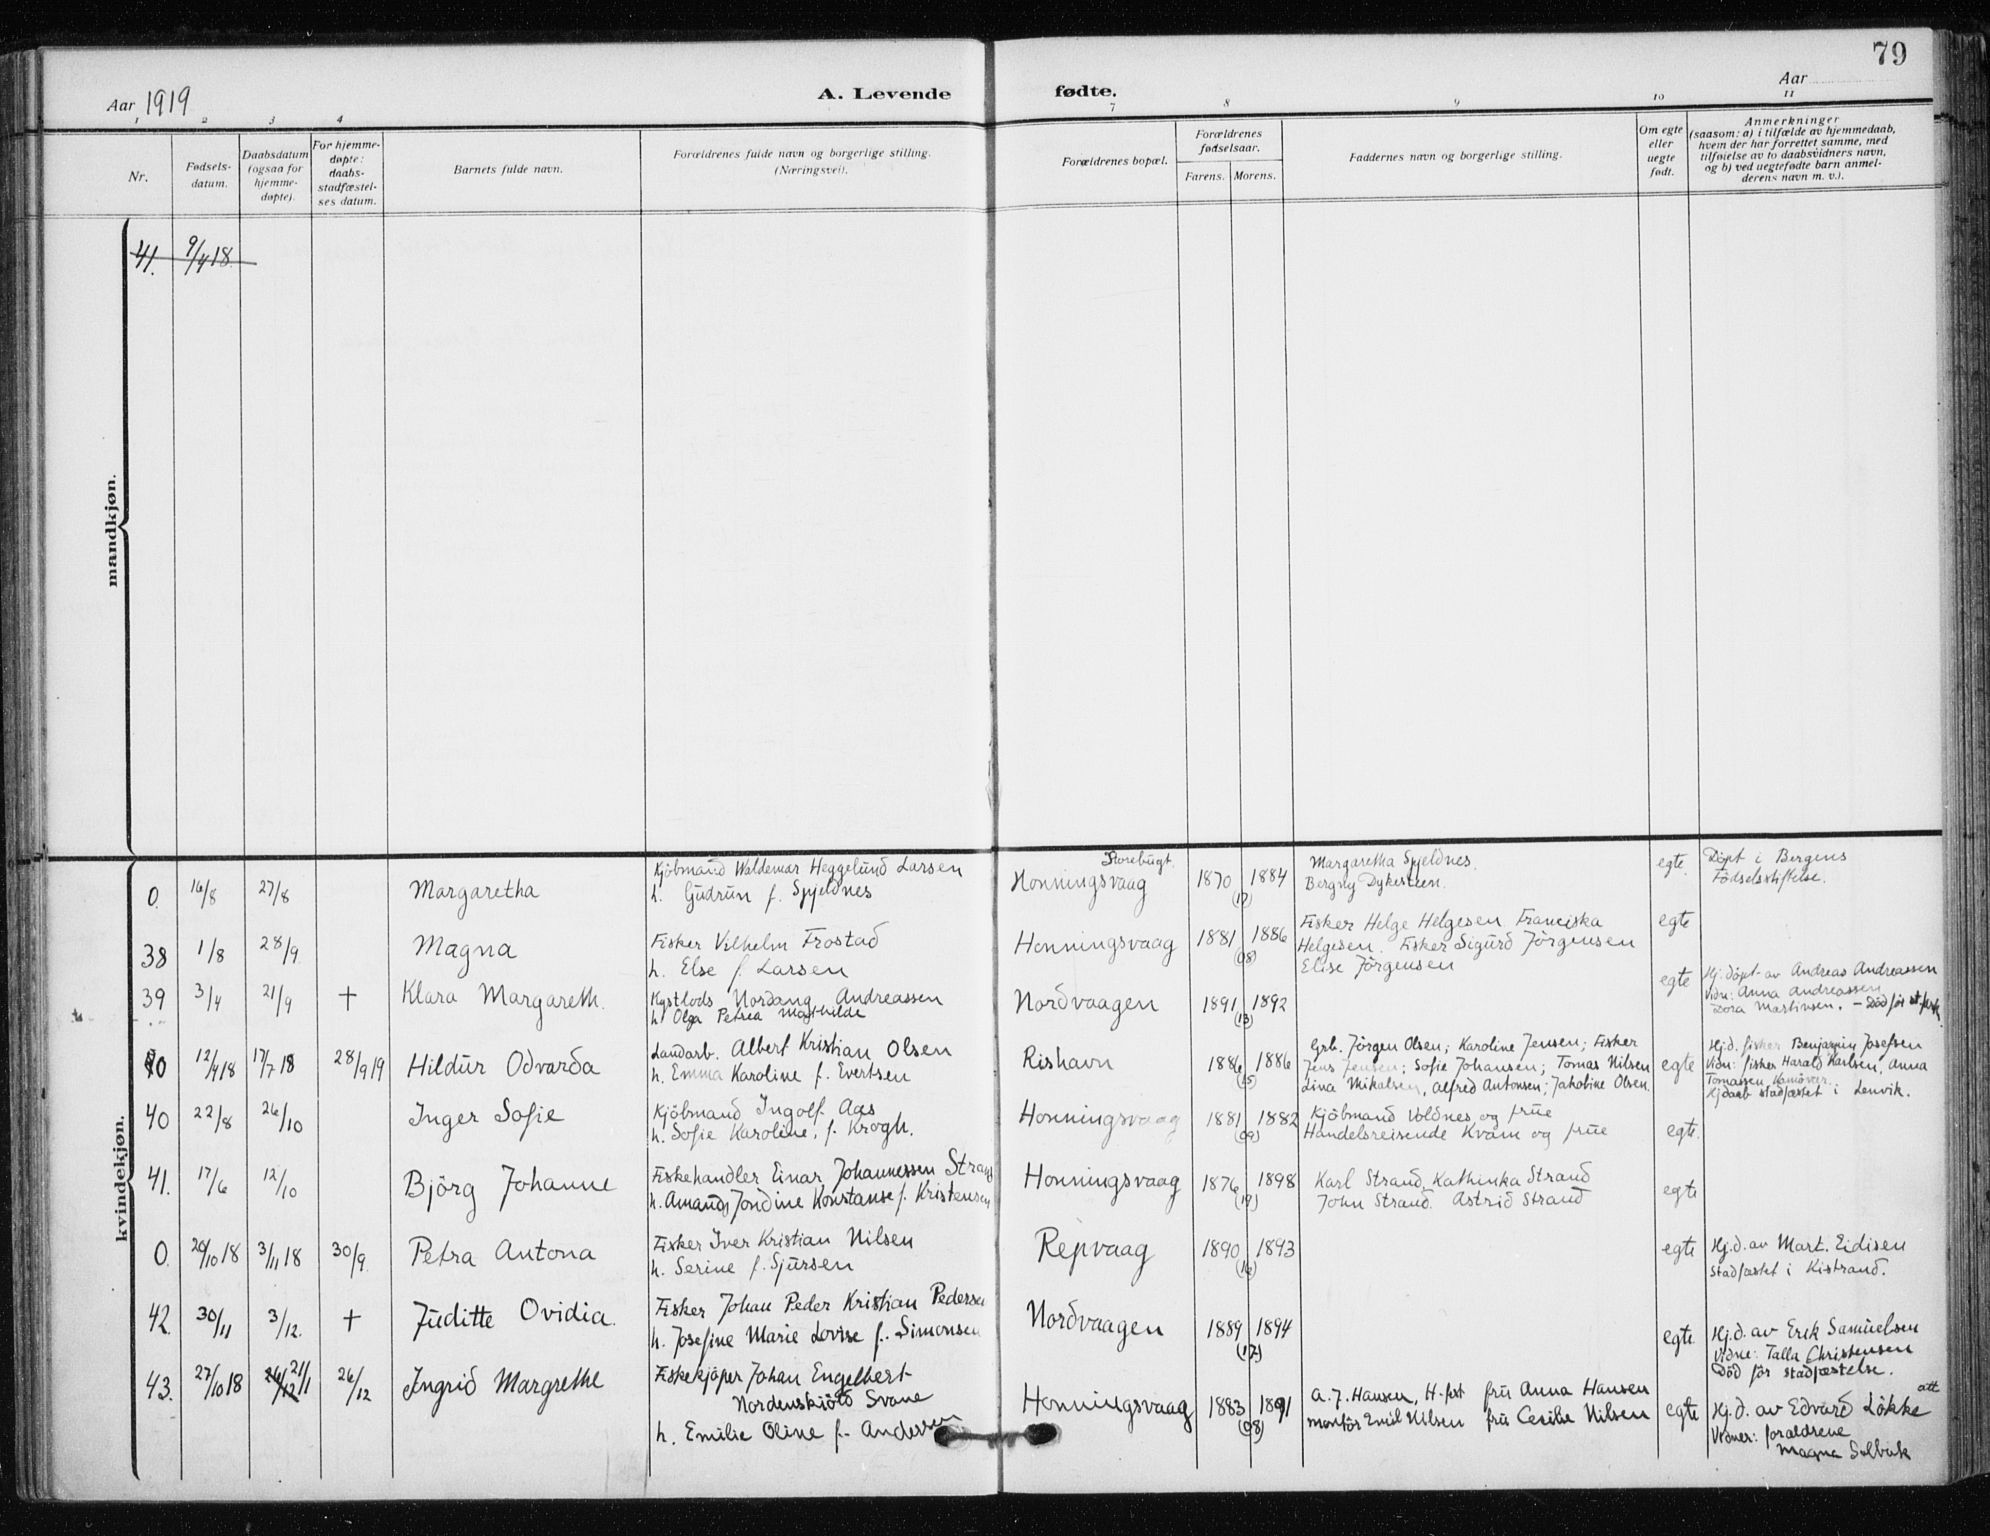 79
Aar 1919
A. Levende fødte.
Aar
1 2 3 4 7 8 9 10 11
Nr.
Fødsels-
datum.
Daabsdatum
(ogsaa for
hjemme-
døpte).
For hjemme-
døpte:
daabs-
stadfæstel-
ses datum.
Barnets fulde navn.
Forældrenes fulde navn og borgerlige stilling.
(Næringsvei).
Forældrenes bopæl.
Forældrenes
fødselsaar.
Farens. Morens.
Faddernes navn og borgerlige stilling.
Om egte
eller
uegte
født.
Anmerkninger
(saasom: a) i tilfælde av hjemmedaab,
hvem der har forrettet samme, med
tilføielse av to daabsvidners navn,
og b) ved uegtefødte barn anmel-
derens navn m. v.).
mandkjøn.
41. 9/4 18.
kvindekjøn.
0. 16/8 27/8 Margaretha
Kjöbmand Waldemar Heggelund Larsen
h. Gudrun f. Spjeldnes
Storebugt.
Honningsvaag 1870 1884 (17)
Margaretha Spjeldnes.
Bergny Dykesteen.
egte.
Döpt i Bergens
Födselsstiftelse.
38 1/8 28/9 Magna
Fisker Vilhelm Frostad
h. Else f. Larsen
Honningsvaag 1881 1886 (08)
Fisker Helge Helgesen Franciska
Helgesen. Fisker Sigurd Jörgensen
Elise Jörgensen
egte
39 3/4 21/9 + Klara Margareth.
Kystlods Nordang Andreassen
h. Olga Petrea Mathilde
Nordvaagen 1891 1892 (13)
egte
Hj. döpt av Andreas Andreassen
Vidn: Anna Andreassen
Dora Martinsen. — Död för st.fæst.
0 12/4 18 17/7 18 28/9 19 Hildur Odvarda
Landarb. Albert Kristian Olsen
h. Emma Karoline f. Evertsen
Rishavn 1886 1886 (15)
Grb. Jörgen Olsen; Karoline Jensen; Fisker
Jens Jensen; Sofie Johansen; Tomas Nilsen
Lina Mikalsen, Alfred Antonsen; Jakobine Olsen.
egte
Hj.d. fisker Benjamin Josefsen
Vidn: fisker Harald Karlsen, Anna
Tomassen Kamöver.
Hjdaab stadfæstet i Lenvik.
40 22/8 26/10 Inger Sofie
Kjöbmand Ingolf Aas
h. Sofie Karoline, f. Krogh.
Honningsvaag 1881 1882 (09)
Kjöbmand Voldnes og frue
Handelsreisende Kvam og frue
egte.
41. 17/6 12/10 Björg Johanne
Fiskehandler Einar Johannessen Strand
h. Amanda Jordine Konstanse f. Kristensen
Honningsvaag 1876 1898 (17)
Karl Strand, Kathinka Strand
John Strand. Astrid Strand
egte
0. 20/10 18 3/11 18 30/9. Petra Antona
Fisker Iver Kristian Nilsen
h. Serine f. Sjursen
Repvaag 1890 1893 (12)
egte
Hj.d. av Mart. Eidisen
Stadfæstet i Kistrand.
42. 30/11 3/12. + Juditte Ovidia.
Fisker Johan Peder Kristian Pedersen
h. Josefine Marie Lovise f. Simonsen
Nordvaagen 1889 1894 (17)
egte
Hj.d. av Erik Samuelsen
Vidne: Talla Christensen
Död för stadfæstelse.
43. 27/10 18 26/12 21/1 26/12 Ingrid Margrethe
Fiskekjöper Johan Engelbert
Nordenskiöld Svane
h. Emilie Oline f. Andersen
Honningsvaag 1883 1891 (08)
A. J. Hansen, H-fest fru Anna Hansen
montör Emil Nilsen fru Cecilie Nilsen
egte
att
Hj.d. av Edvard Lökke
Vidner: forældrene
Magna Solbak